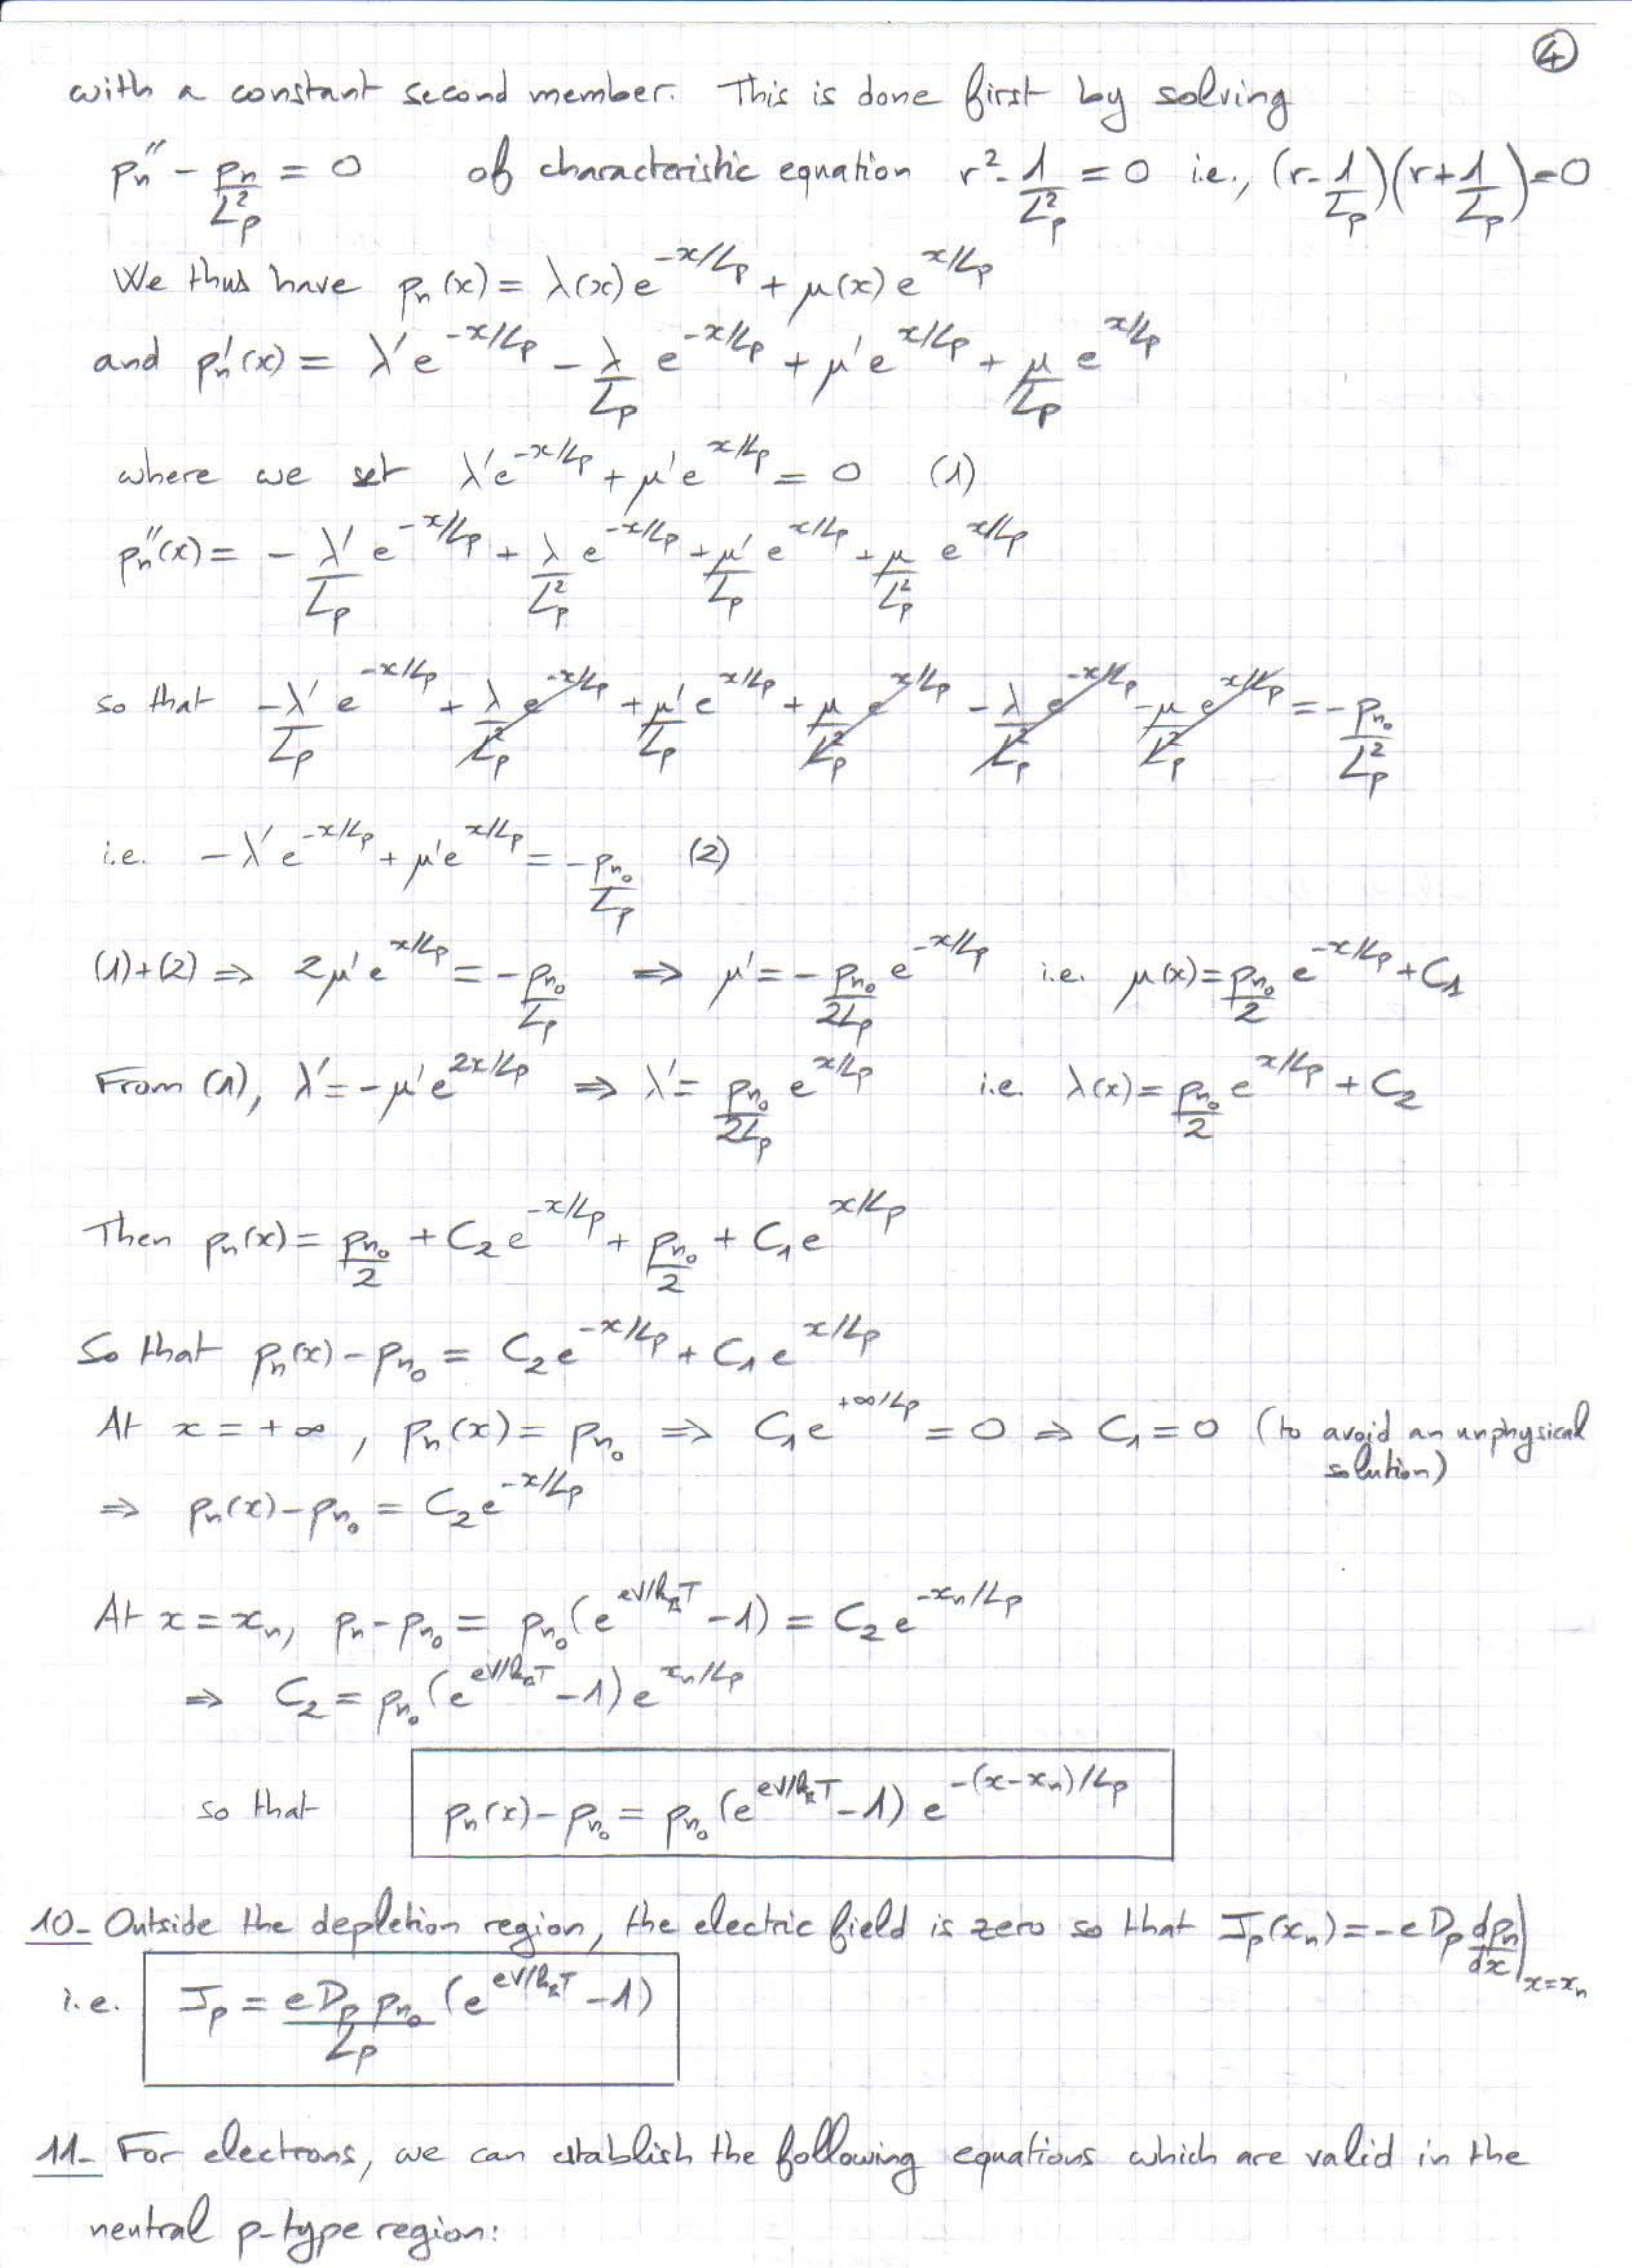 ④
with a constant second member. This is done first by solving
pₙ'' - pₙ/Lₚ² = 0 of characteristic equation r² - 1/Lₚ² = 0 i.e., (r - 1/Lₚ)(r + 1/Lₚ) = 0
We thus have pₙ(x) = λ(x) e^(-x/Lₚ) + μ(x) e^(x/Lₚ)
and pₙ'(x) = λ' e^(-x/Lₚ) - λ/Lₚ e^(-x/Lₚ) + μ' e^(x/Lₚ) + μ/Lₚ e^(x/Lₚ)
where we set λ' e^(-x/Lₚ) + μ' e^(x/Lₚ) = 0 (1)
pₙ''(x) = - λ'/Lₚ e^(-x/Lₚ) + λ/Lₚ² e^(-x/Lₚ) + μ'/Lₚ e^(x/Lₚ) + μ/Lₚ² e^(x/Lₚ)
so that -λ'/Lₚ e^(-x/Lₚ) + λ/Lₚ² e^(-x/Lₚ) + μ'/Lₚ e^(x/Lₚ) + μ/Lₚ² e^(x/Lₚ) - λ/Lₚ² e^(-x/Lₚ) - μ/Lₚ² e^(x/Lₚ) = - pₙ₀/Lₚ²
i.e. -λ' e^(-x/Lₚ) + μ' e^(x/Lₚ) = - pₙ₀/Lₚ (2)
(1)+(2) ⇒ 2μ' e^(x/Lₚ) = - pₙ₀/Lₚ ⇒ μ' = - pₙ₀/2Lₚ e^(-x/Lₚ) i.e. μ(x) = pₙ₀/2 e^(-x/Lₚ) + C₁
From (1), λ' = -μ' e^(2x/Lₚ) ⇒ λ' = pₙ₀/2Lₚ e^(x/Lₚ) i.e. λ(x) = pₙ₀/2 e^(x/Lₚ) + C₂
Then pₙ(x) = pₙ₀/2 + C₂ e^(-x/Lₚ) + pₙ₀/2 + C₁ e^(x/Lₚ)
So that pₙ(x) - pₙ₀ = C₂ e^(-x/Lₚ) + C₁ e^(x/Lₚ)
At x = +∞, pₙ(x) = pₙ₀ ⇒ C₁ e^(+∞/Lₚ) = 0 ⇒ C₁ = 0 (to avoid an unphysical
solution)
⇒ pₙ(x) - pₙ₀ = C₂ e^(-x/Lₚ)
At x = xₙ, pₙ - pₙ₀ = pₙ₀ (e^(eV/k_BT) - 1) = C₂ e^(-xₙ/Lₚ)
⇒ C₂ = pₙ₀ (e^(eV/k_BT) - 1) e^(xₙ/Lₚ)
so that pₙ(x) - pₙ₀ = pₙ₀ (e^(eV/k_BT) - 1) e^(-(x-xₙ)/Lₚ)
10- Outside the depletion region, the electric field is zero so that Jₚ(xₙ) = -e Dₚ dpₙ/dx |x=xₙ
i.e. Jₚ = e Dₚ pₙ₀/Lₚ (e^(eV/k_BT) - 1)
11- For electrons, we can establish the following equations which are valid in the
neutral p-type region: